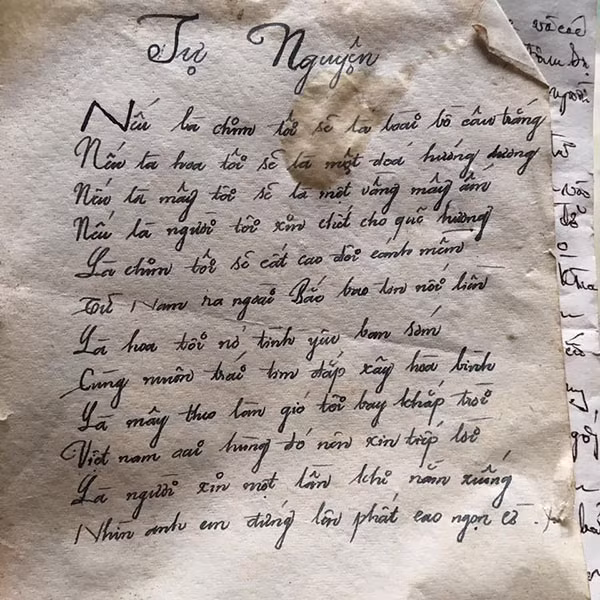 Tự Nguyện
Nếu là chim tôi sẽ là loài bồ câu trắng
Nếu là hoa tôi sẽ là một đoá hướng dương
Nếu là mây tôi sẽ là một vầng mây ấm
Nếu là người tôi xin chết cho quê hương
Là chim tôi sẽ cất cao đôi cánh mềm
Từ Nam ra ngoài Bắc bao tin nối liền
Là hoa tôi nở tình yêu ban sớm
Cùng muôn trái tim đắp xây hòa bình
Là mây theo làn gió tôi bay khắp trời
Việt nam oai hùng đó nên xin tiếp lời
Là người xin một lần khi nằm xuống
Nhìn anh em đứng lên phất cao ngọn cờ